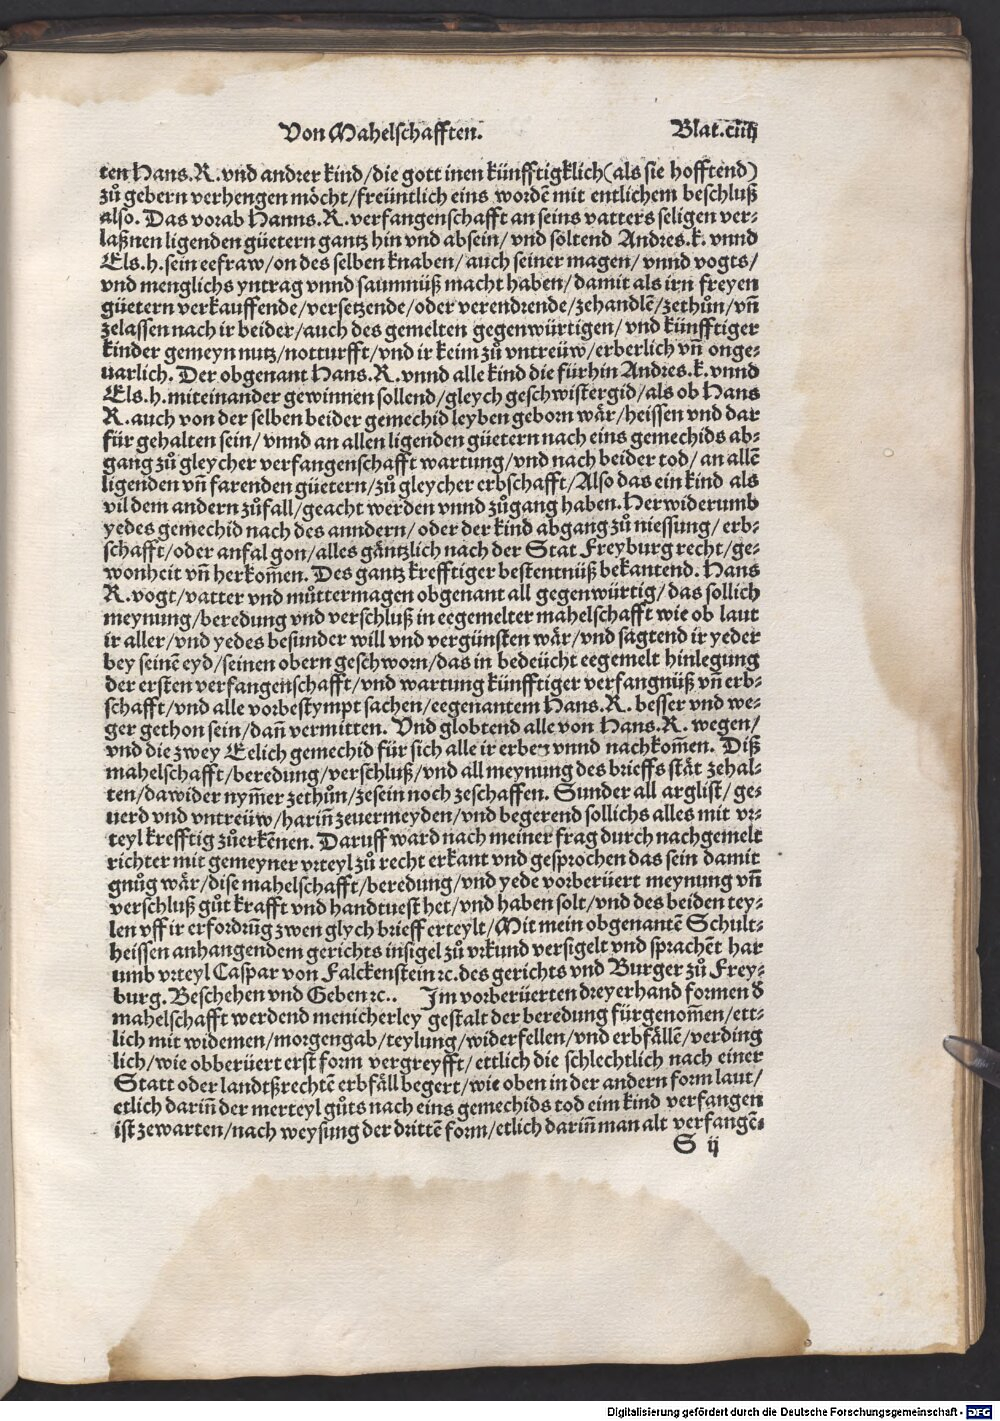 Von Mahelschafften. Blat.ciiij
ten Hans.R.vnd andrer kind/die gott inen künfftigklich(als sie hofftend)
zů gebern verhengen möcht/freüntlich eins wordē mit entlichem beschluß
also. Das vorab Hanns.R.verfangenschafft an seins vatters seligen ver⸗
laßnen ligenden güetern gantz hin vnd absein/vnd söltend Andres.k.vnnd
Els.h.sein eefraw/on des selben knaben/auch seiner magen/vnnd vogts/
vnd menglichs yntrag vnnd saumnüß macht haben/damit als irn freyen
güetern verkauffende/versetzende/oder verendrende/zehandlē/zethůn/vn̄
zelassen nach ir beider/auch des gemelten gegenwürtigen/vnd künfftiger
kinder gemeyn nutz/notturfft/vnd ir keim zů vntreüw/erberlich vn̄ onge⸗
uarlich. Der obgenant Hans.R.vnnd alle kind die fürhin Andres.k.vnnd
Els.h.miteinander gewinnen sollend/gleych geschwistergid/als ob Hans
R.auch von der selben beider gemechid leyben geborn wär/heissen vnd dar
für gehalten sein/vnnd an allen ligenden güetern nach eins gemechids ab⸗
gang zů gleycher verfangenschafft wartung/vnd nach beider tod/an allē
ligenden vn̄ farenden güetern/zů gleycher erbschafft/Also das ein kind als
vil dem andern zůfall/geacht werden vnnd zůgang haben.Herwiderumb
yedes gemechid nach des anndern/oder der kind abgang zů niessung/erb⸗
schafft/oder anfal gon/alles gäntzlich nach der Stat Freyburg recht/ge⸗
wonheit vn̄ herkom̄en. Des gantz krefftiger bestentnüß bekantend. Hans
R.vogt/vatter vnd můttermagen obgenant all gegenwürtig/das sollich
meynung/beredung vnd verschluß in eegemelter mahelschafft wie ob laut
ir aller/vnd yedes besunder will vnd vergünsten wär/vnd sagtend ir yeder
bey seinē eyd/seinen obern geschworn/das in bedeücht eegemelt hinlegung
der ersten verfangenschafft/vnd wartung künfftiger verfangnüß vn̄ erb⸗
schafft/vnd alle vorbestympt sachen/eegenantem Hans.R.besser vnd we⸗
ger gethon sein/dan̄ vermitten. Vnd globtend alle von Hans.R.wegen/
vnd die zwey Eelich gemechid für sich alle ir erben vnnd nachkom̄en. Diß
mahelschafft/beredung/verschluß/vnd all meynung des brieffs stät zehal⸗
ten/dawider nym̄er zethůn/zesein noch zeschaffen. Sunder all arglist/ge⸗
uerd vnd vntreüw/harin̄ zeuermeyden/vnd begerend sollichs alles mit vr⸗
teyl krefftig zůerkēnen. Daruff ward nach meiner frag durch nachgemelt
richter mit gemeyner vrteyl zů recht erkant vnd gesprochen das sein damit
gnůg wär/dise mahelschafft/beredung/vnd yede vorberüert meynung vn̄
verschluß gůt krafft vnd handtuest het/vnd haben solt/vnd des beiden tey⸗
len vff ir erfordrūg zwen glych brieff erteylt/Mit mein obgenantē Schult⸗
heissen anhangendem gerichts insigel zů vrkund versigelt vnd sprachēt har
umb vrteyl Caspar von Falckenstein ꝛc.des gerichts vnd Burger zů Frey⸗
burg.Beschehen vnd Geben ꝛc.. Im vorberüerten dreyerhand formen d̄
mahelschafft werdend menicherley gestalt der beredung fürgenom̄en/ett⸗
lich mit widemen/morgengab/teylung/widerfellen/vnd erbfällē/verding
lich/wie obberüert erst form vergreyfft/ettlich die schlechtlich nach einer
Statt oder landtßrechtē erbfäll begert/wie oben in der andern form laut/
etlich darin̄ der merteyl gůts nach eins gemechids tod eim kind verfangen
ist zewarten/nach weysung der drittē form/etlich darin̄ man alt verfangē⸗
S ij
Digitalisierung gefördert durch die Deutsche Forschungsgemeinschaft - DFG